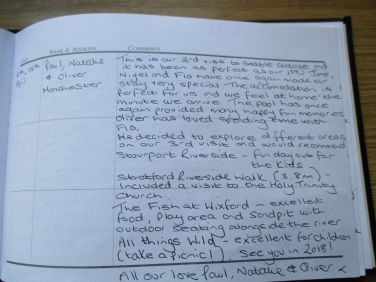 DATE NAME & ADDRESS COMMENTS
Paul, Natalie
& Oliver
Manchester
This is our 3rd visit to Stable Cottage and
it has been as perfect as our 1st time,
Nigel and Flo have once again made our
stay very special. The accomodation is
perfect for us and we feel 'at home' the
minute we arrive. The pool has once
again provided many happy fun memories
Oliver has loved spending time with
Flo.
We decided to explore different areas
on our 3rd visit and would recommend
Stourport Riverside - fun day out for
the kids.
Stratford Riverside Walk (3.8m) -
Included a visit to the Holy Trinity
Church.
The Fish at Wixford - excellent
food, play area and sandpit with
outdoor seating alongside the river
All things Wild - excellent for children
(take a picnic!). See you in 2018!
All our love Paul, Natalie & Oliver x